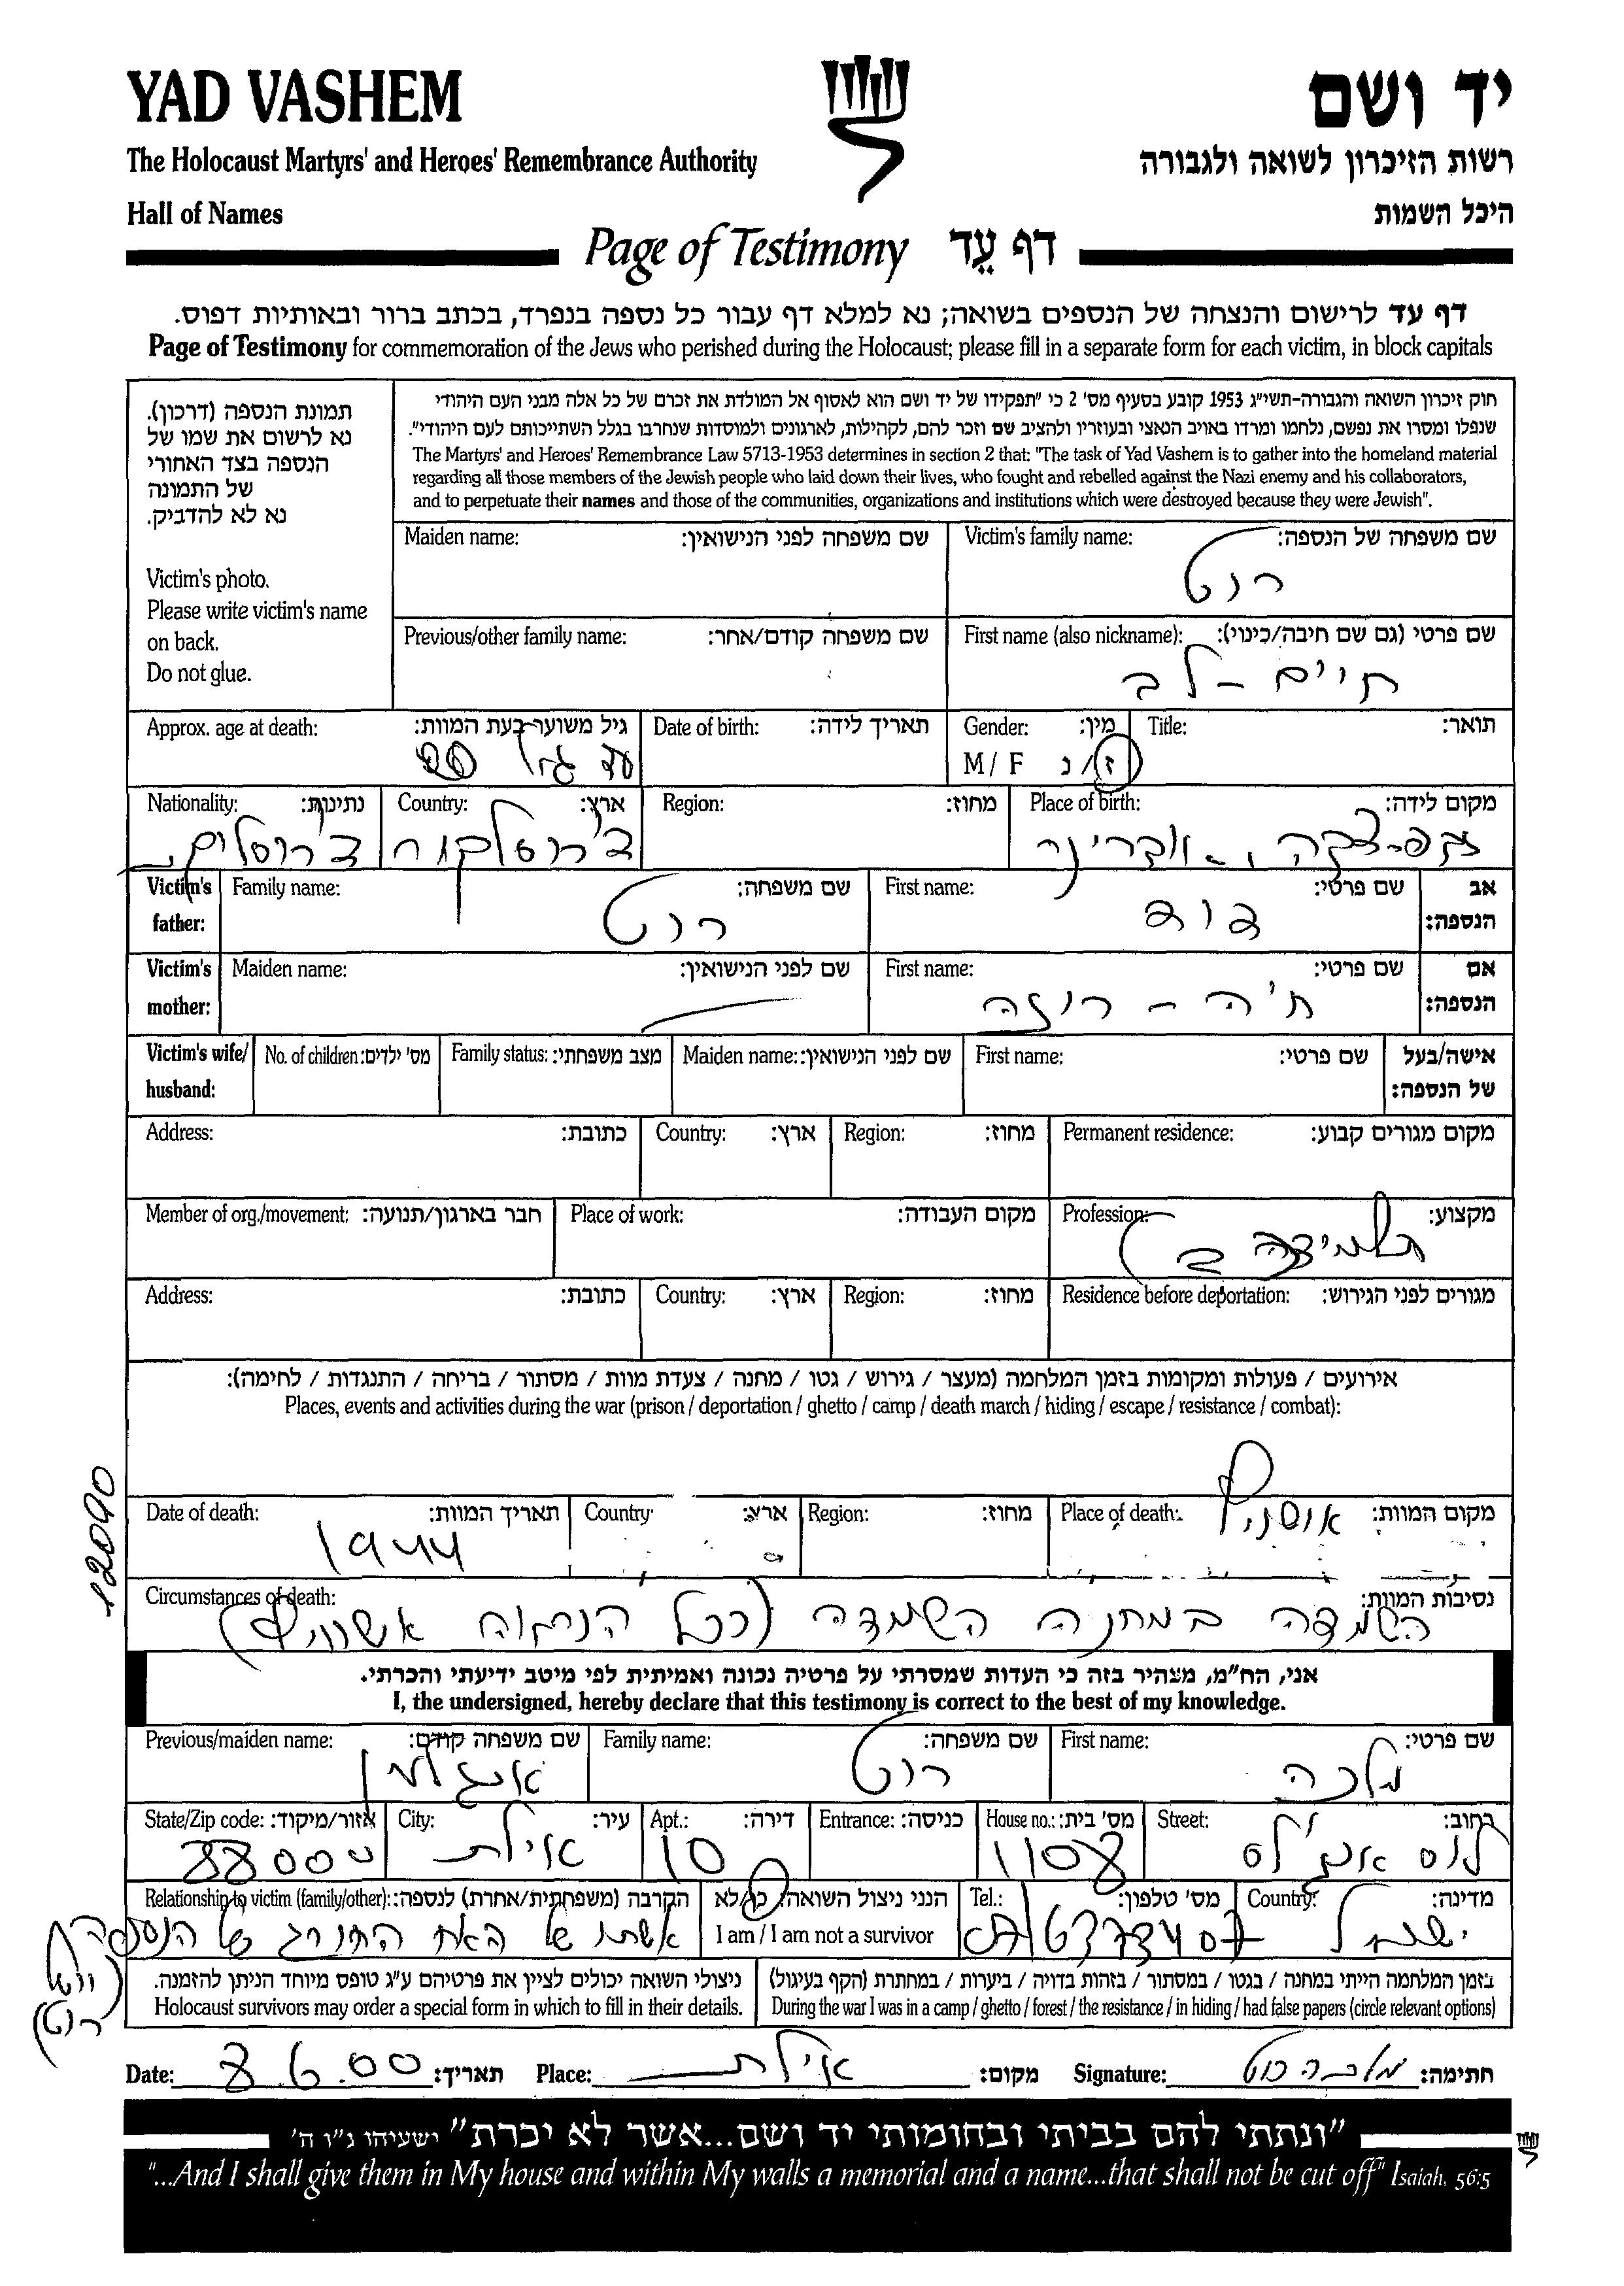 YAD VASHEM
יד ושם
The Holocaust Martyrs' and Heroes' Remembrance Authority
רשות הזיכרון לשואה ולגבורה
Hall of Names
היכל השמות
Page of Testimony דף עֵד
דף עד לרישום והנצחה של הנספים בשואה; נא למלא דף עבור כל נספה בנפרד, בכתב ברור ובאותיות דפוס.
Page of Testimony for commemoration of the Jews who perished during the Holocaust; please fill in a separate form for each victim, in block capitals
תמונת הנספה (דרכון).
נא לרשום את שמו של
הנספה בצד האחורי
של התמונה
נא לא להדביק.
Victim's photo.
Please write victim's name
on back.
Do not glue.
חוק זיכרון השואה והגבורה-תשי"ג 1953 קובע בסעיף מס' 2 כי "תפקידו של יד ושם הוא לאסוף אל המולדת את זכרם של כל אלה מבני העם היהודי
שנפלו ומסרו את נפשם, נלחמו ומרדו באויב הנאצי ובעוזריו ולהציב שם וזכר להם, לקהילות, לארגונים ולמוסדות שנחרבו בגלל השתייכותם לעם היהודי".
The Martyrs' and Heroes' Remembrance Law 5713-1953 determines in section 2 that: "The task of Yad Vashem is to gather into the homeland material
regarding all those members of the Jewish people who laid down their lives, who fought and rebelled against the Nazi enemy and his collaborators,
and to perpetuate their names and those of the communities, organizations and institutions which were destroyed because they were Jewish".
Maiden name: שם משפחה לפני הנישואין:
Victim's family name: שם משפחה של הנספה:
רוט
Previous/other family name: שם משפחה קודם/אחר:
First name (also nickname): שם פרטי (גם שם חיבה/כינוי):
חיים - לב
Approx. age at death: גיל משוער בעת המוות: Date of birth: תאריך לידה: Gender: מין: Title: תואר:
עד גיל 20 M / F ז/נ
Nationality: נתינות: Country: ארץ: Region: מחוז: Place of birth: מקום לידה:
צ'כוסלקיה אוקרינה
Victim's father: Family name: שם משפחה: First name: שם פרטי: אב הנספה:
רוט דוד
Victim's mother: Maiden name: שם לפני הנישואין: First name: שם פרטי: אם הנספה:
חיה - רוזה
Victim's wife/ husband: No. of children: מס' ילדים: Family status: מצב משפחתי: Maiden name: שם לפני הנישואין: First name: שם פרטי: אישה/בעל של הנספה:
Address: כתובת: Country: ארץ: Region: מחוז: Permanent residence: מקום מגורים קבוע:
Member of org./movement: חבר בארגון/תנועה: Place of work: מקום העבודה: Profession: מקצוע:
Address: כתובת: Country: ארץ: Region: מחוז: Residence before deportation: מגורים לפני הגירוש:
אירועים / פעולות ומקומות בזמן המלחמה (מעצר / גירוש / גטו / מחנה / צעדת מוות / מסתור / בריחה / התנגדות / לחימה):
Places, events and activities during the war (prison / deportation / ghetto / camp / death march / hiding / escape / resistance / combat):
12090
Date of death: תאריך המוות: Country: ארץ: Region: מחוז: Place of death: מקום המוות:
1944 אושויץ
Circumstances of death: נסיבות המוות:
השמדה במחנה השמדה (ככל הנראה אשוויץ)
אני, הח"מ, מצהיר בזה כי העדות שמסרתי על פרטיה נכונה ואמיתית לפי מיטב ידיעתי והכרתי.
I, the undersigned, hereby declare that this testimony is correct to the best of my knowledge.
Previous/maiden name: שם משפחה קודם: Family name: שם משפחה: First name: שם פרטי:
אנגלמן רוט מלכה
State/Zip code: אזור/מיקוד: City: עיר: Apt.: דירה: Entrance: כניסה: House no.: מס' בית: Street: רחוב:
88000 אילת 10 1108 לוס אנג'לס
Relationship to victim (family/other): הקרבה (משפחתית/אחרת) לנספה: הנני ניצול השואה: כן/לא I am / I am not a survivor Tel.: מס' טלפון: Country: מדינה:
אשתו של האח החורג של הנספה ישראל
רוט)
ניצולי השואה יכולים לציין את פרטיהם ע"ג טופס מיוחד הניתן להזמנה.
Holocaust survivors may order a special form in which to fill in their details.
בזמן המלחמה הייתי במחנה / בגטו / במסתור / בזהות בדויה / ביערות / במחתרת (הקף בעיגול)
During the war I was in a camp / ghetto / forest / the resistance / in hiding / had false papers (circle relevant options)
Date: 8.6.00 תאריך: Place: אילת מקום: Signature: מלכה רוט חתימה:
"ונתתי להם בביתי ובחומותי יד ושם...אשר לא יכרת" ישעיהו נ"ו ה'
"...And I shall give them in My house and within My walls a memorial and a name...that shall not be cut off" Isaiah, 56:5